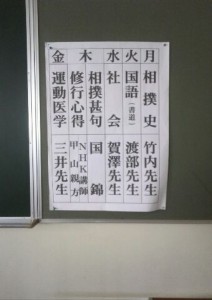 月 相撲史 竹内先生
火 国語(書道) 渡部先生
水 社会 賀澤先生
木 相撲甚句 国錦
修行心得 NHK講師 甲山親方
金 運動医学 三井先生